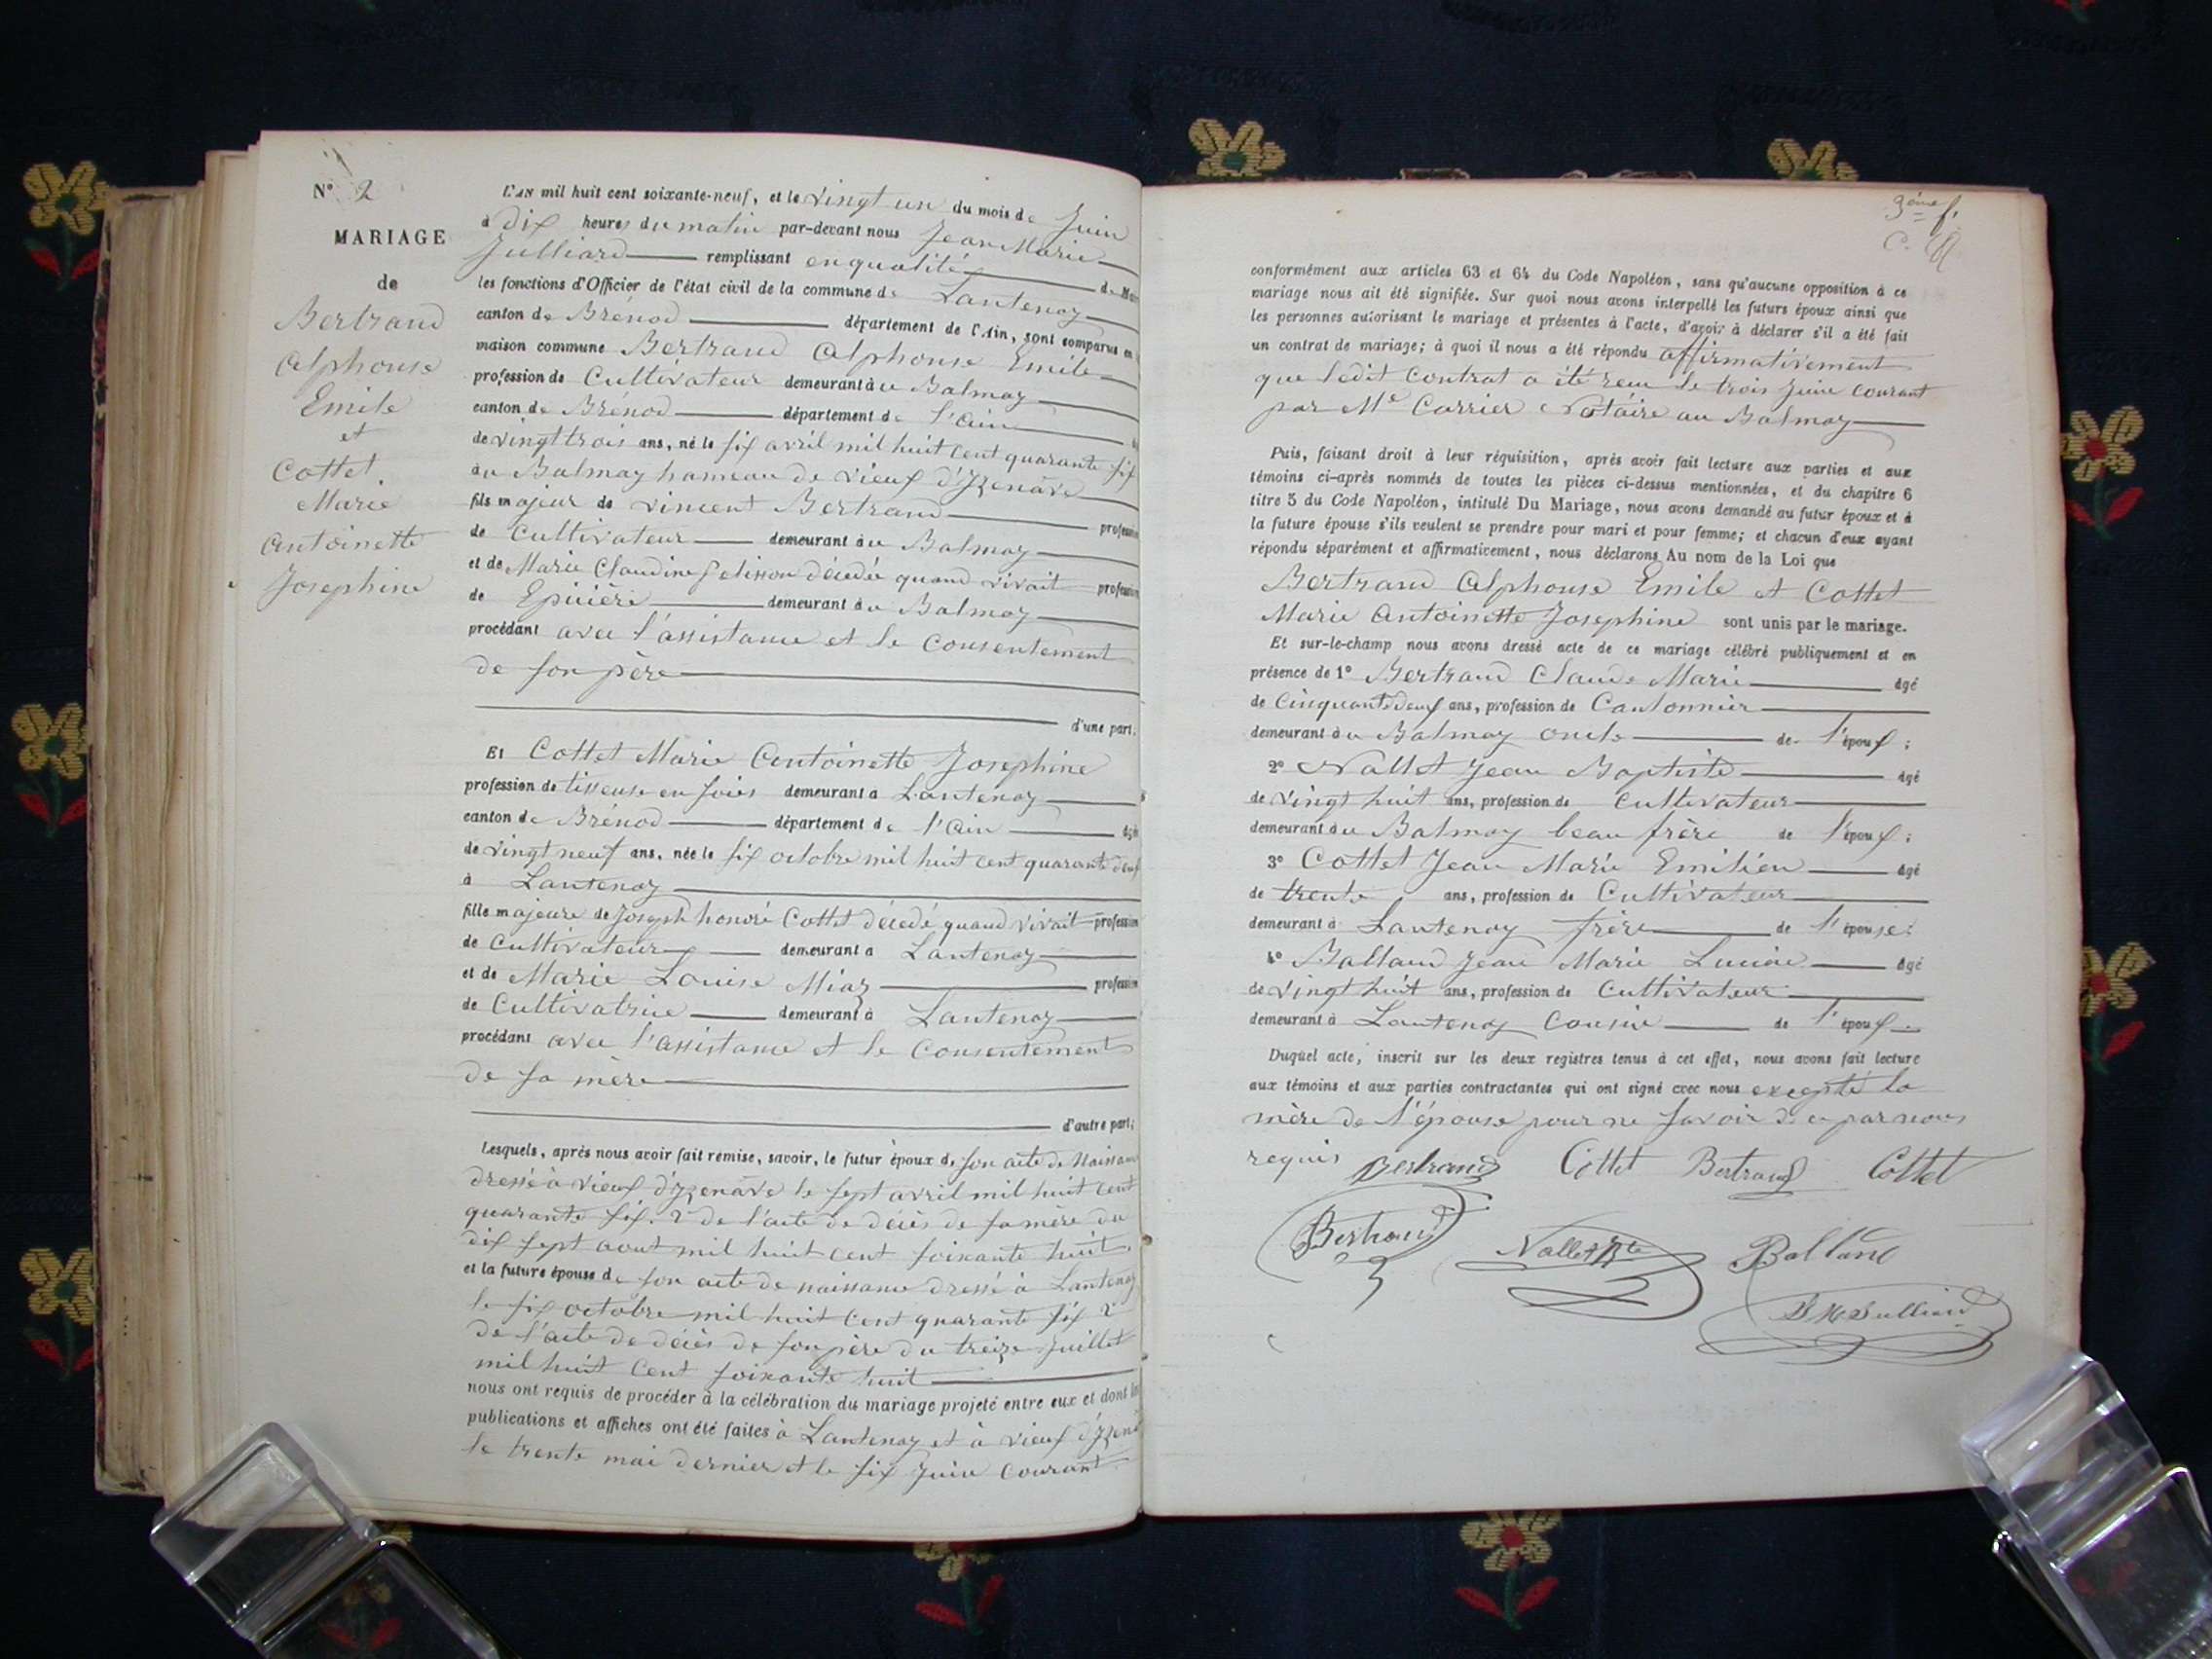 N° 2
MARIAGE
de
Bertrand
Alphonse
Emile
et
Cottet
Marie
Antoinette
Josephine
L'AN mil huit cent soixante-neuf, et le vingt un du mois de Juin
à dix heures du matin par-devant nous Jean Marie
Julliard remplissant en qualité de Mai
les fonctions d'Officier de l'état civil de la commune de Lantenay
canton de Brénod département de l'Ain, sont comparus en
maison commune Bertrand Alphonse Emile
profession de Cultivateur demeurant à u Balmay
canton de Brénod département de l'Ain
de vingt trois ans, né le six avril mil huit cent quarante six
àu Balmay hameau de vieux d'Izenave
fils majeur de vincent Bertrand profession
de Cultivateur demeurant àu Balmay
et de Marie Claudine Pelisson décédée quand vivait profession
de Epicière demeurant àu Balmay
procédant avec l'assistance et le consentement
de son père
d'une part;
Et Cottet Marie Antoinette Josephine
profession de tisseuse en soies demeurant a Lantenay
canton de Brénod département de l'Ain âgé
de vingt neuf ans, née le six octobre mil huit cent quarante deux
à Lantenay
fille majeure de Joseph honoré Cottet décédé quand vivait profession
de Cultivateur demeurant a Lantenay
et de Marie Louise Miaz profession
de Cultivatrice demeurant à Lantenay
procédant avec l'assistance et le consentement
de sa mère
d'autre part;
Lesquels, après nous avoir fait remise, savoir, le futur époux de son acte de Naissance
dressé à vieux d'Izenave le sept avril mil huit cent
quarante six. 2° de l'acte de décès de sa mère du
dix sept aout mil huit cent soixante huit
et la future épouse de son acte de naissance dressé à Lantenay
le six octobre mil huit cent quarante six 2°
de l'acte de décès de son père du treize Juillet
mil huit cent soixante huit
nous ont requis de procéder à la célébration du mariage projeté entre eux et dont les
publications et affiches ont été faites à Lantenay et à vieux d'Izena
le trente mai dernier et le six Juin courant
3ème f.
conformément aux articles 63 et 64 du Code Napoléon, sans qu'aucune opposition à ce
mariage nous ait été signifiée. Sur quoi nous avons interpellé les futurs époux ainsi que
les personnes autorisant le mariage et présentes à l'acte, d'avoir à déclarer s'il a été fait
un contrat de mariage; à quoi il nous a été répondu affirmativement
que ledit contrat a été recu le trois Juin courant
par Me Carrier Notaire au Balmay
Puis, faisant droit à leur réquisition, après avoir fait lecture aux parties et aux
témoins ci-après nommés de toutes les pièces ci-dessus mentionnées, et du chapitre 6
titre 5 du Code Napoléon, intitulé Du Mariage, nous avons demandé au futur époux et à
la future épouse s'ils veulent se prendre pour mari et pour femme; et chacun d'eux ayant
répondu séparément et affirmativement, nous déclarons Au nom de la Loi que
Bertrand Alphonse Emile et Cottet
Marie Antoinette Josephine sont unis par le mariage.
Et sur-le-champ nous avons dressé acte de ce mariage célébré publiquement et en
présence de 1° Bertrand Claude Marie âgé
de Cinquante deux ans, profession de Cantonnier
demeurant àu Balmay oncle de l'époux;
2° Nallet Jean Baptiste âgé
de vingt huit ans, profession de Cultivateur
demeurant àu Balmay beau frère de l'époux;
3° Cottet Jean Marie Emilien âgé
de trente ans, profession de Cultivateur
demeurant à Lantenay frère de l'épouse;
4° Balland Jean Marie Lucien âgé
de vingt huit ans, profession de Cultivateur
demeurant à Lantenay Cousin de l'époux.
Duquel acte, inscrit sur les deux registres tenus à cet effet, nous avons fait lecture
aux témoins et aux parties contractantes qui ont signé avec nous excepté la
mère de l'épouse pour ne savoir de ce par nous
requis Bertrand Cottet Bertrand Cottet
Bertrand Nallet Bte Balland
J M Julliard